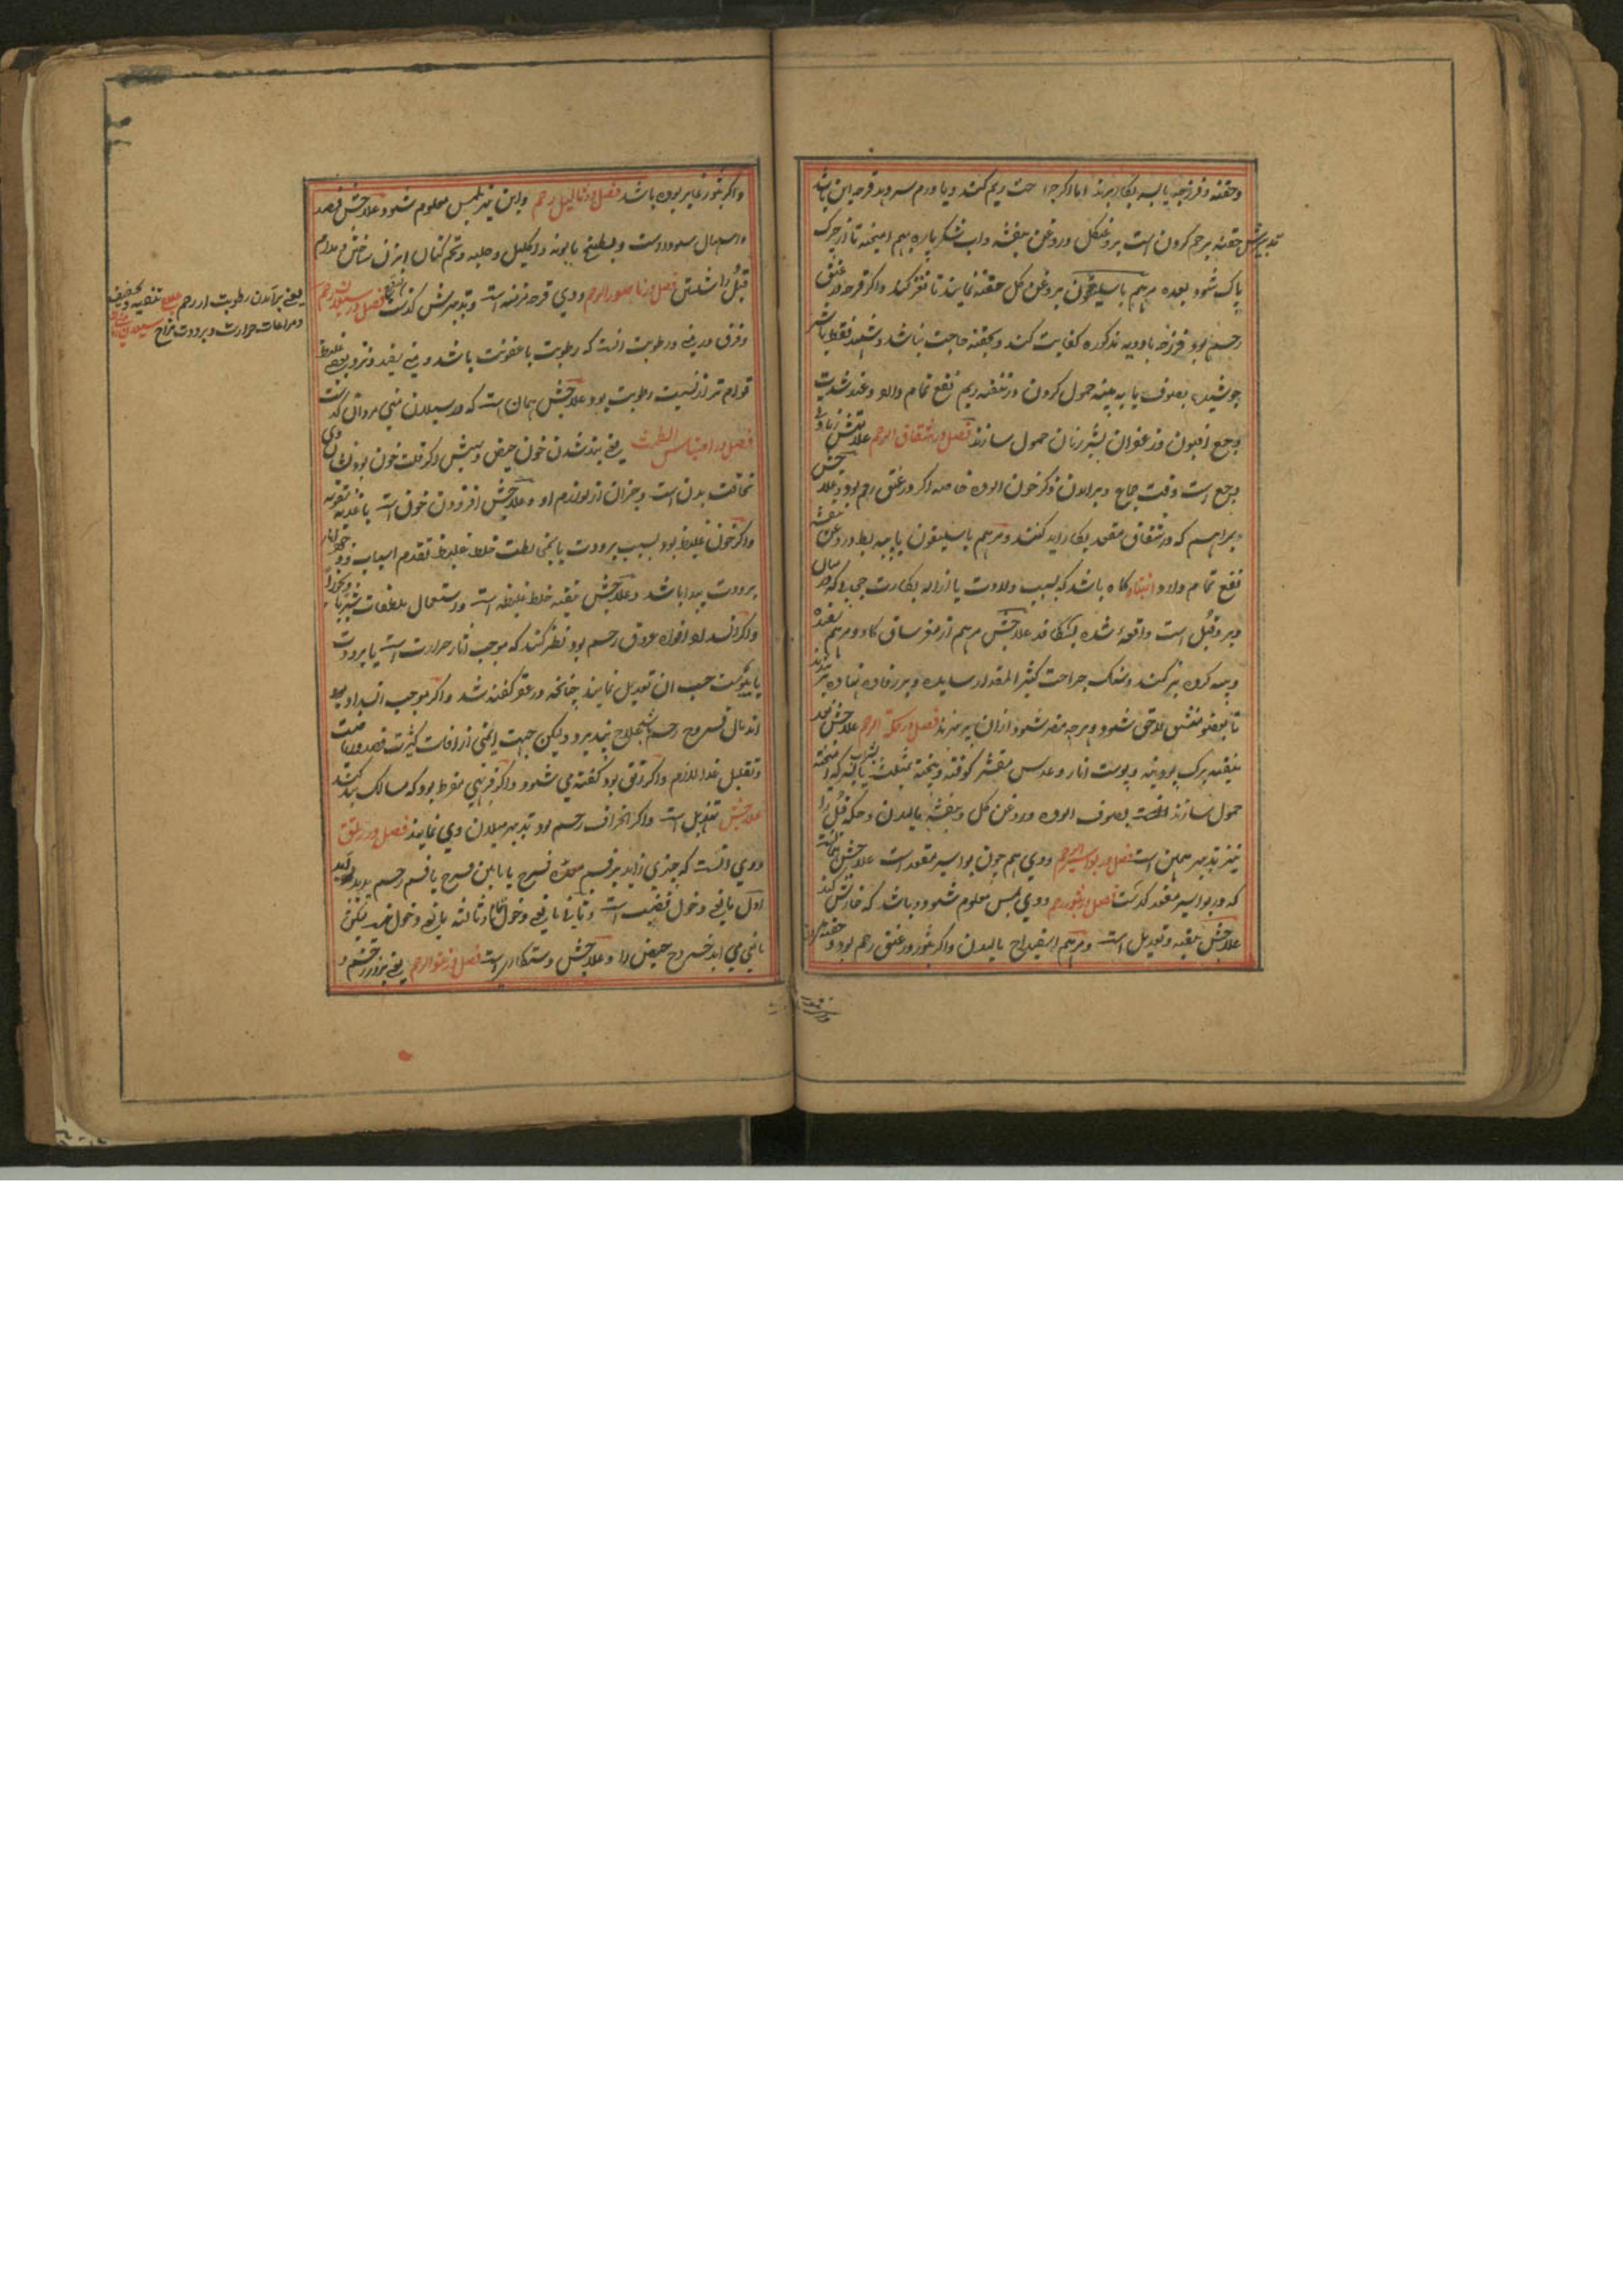 و حقنه و فرزجه یابسه بکار برند اما اگر جراحت ریم کند و یا ورم سر دهد قرحه این باشد
تدبیرش حقنه برحم کردن است بروغن گل و روغن بنفشه و آب شکر پاره بهم آمیخته تا از چرک
پاک شود بعده مرهم باسلیقون بروغن گل حقنه نمایند تا نفوذ کند و اگر قرحه در عنق
رحم بود فرزجه بادویه مذکوره کفایت کند و بحقنه حاجت نباشد و فقط باشیر
جوشیده بصوف یا به پنبه حمول کردن در تنقیه ریم نفع تمام دارد و عند شدت
وجع افیون و زعفران بشیر زنان حمول سازند فصل در شقاق الرحم علامتش زیادتی
وجع است وقت جماع و برآمدن ذکر خون آلوده خاصه اگر در عنق رحم بود و علاجش
مراهم که در شقاق مقعد بکار آید کنند و مرهم باسلیقون با پیه بط و روغن بنفشه
نفع تمام دارد انتباه گاه باشد که بسبب ولادت یا ازاله بکارت حجابی که میان
دبر و قبل است واقعه شده بشکافد علاجش مرهم از مغز ساق گاو و مرهم
و پیه گرده بز کنند و سنگ جراحت کثیر المقدار ساییده و بر رفاده نهاده بربندند
تا بعضو منشق لاحق شود و هرچه مضر شود ازان بپرهیزند فصل در حکة الرحم علاجش فصد
تنقیه برگ پودینه و پوست انار و عدس مقشر کوفته و پخته بمثلث یا بسرکه آمیخته
حمول سازند بصوف آلوده و روغن گل و بنفشه مالیدن و حکه قبل را
نیز تدبیر همین است فصل در بواسیر الرحم و وی هم چون بواسیر مقعد است علاجش همانست
که در بواسیر مقعد گذشت فصل در بثور رحم و وی بلمس معلوم شود و باشد که خارش کند
علاجش تنقیه و تعدیل است و مرهم اسفیداج مالیدن و اگر بثور در عنق رحم بود و حقنه
واگر بثور غایر بوده باشد فصل در ثالیل رحم و این نیز بلمس معلوم شود علاجش فصد
و اسهال سودا است و بطبیخ بابونه و اکلیل و حلبه و تخم کتان آبزن ساختن و مدام
قبل را شستن فصل در ناصور الرحم و وی قرحه مزمنه است و تدبیرش گذشت فصل در سیلان رحم
یعنی برآمدن رطوبت از رحم علاج تنقیه و تجفیف
و مراعات حرارت و برودت مزاج
و فرق در منی و رطوبت آنست که رطوبت با عفونت باشد و منی سفید و بعضی غلیظ
قوام تر از نسبت رطوبت بود علاجش همان است که در سیلان منی مردان گذشت
فصل در احتباس الطمث یعنی بند شدن خون حیض و سببش اگر قلت خون بود نشان وی
نحافت بدن است و جز آن از لوازم او و علاجش افزودن خون است باغذیه مقویه
واگر خون غلیظ بود بسبب برودت یا بمخالطت خلط غلیظ تقدم اسباب
برودت پیدا باشد و علاجش تنقیه خلط غلیظ است و استعمال ملطفات شربا
واگر انسداد افواه عروق رحم بود نظر کنند که موجب آثار حرارت است یا برودت
یا یبوست حسب آن تعدیل نمایند چنانچه در عقر گفته شد و اگر موجب انسداد
اندمال قروح رحم علاج نپذیرد ولیکن جهت ایمنی از آفات کثرت فصد و ریاضت
و تقلیل غذا لازم و اگر رتق بود گفته می شود و اگر فربهی مفرط بود که مسالک بند شد
علاجش تهزیل است و اگر انحراف رحم بود تدبیر میلان وی نمایند فصل در رتق
و وی آنست که چیزی زاید بر فم فرج یا مابین فرج یا فم رحم پدید آید
اول مانع دخول قضیب است و ثانی مانع دخول تمام و ثالثه مانع دخول نیست لیکن
مانع می آید خروج حیض را و علاجش دستکاری است فصل در نتو الرحم یعنی